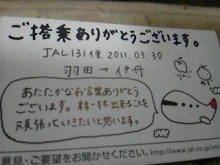 ご搭乗ありがとうございます。
JAL131便 2011.03.30
羽田→伊丹
あたたかなお言葉ありがとう
ございます。出来ることを
頑張っていきたいと思います。
意見・ご要望をお聞かせください。
http://www.jal.co.jp/